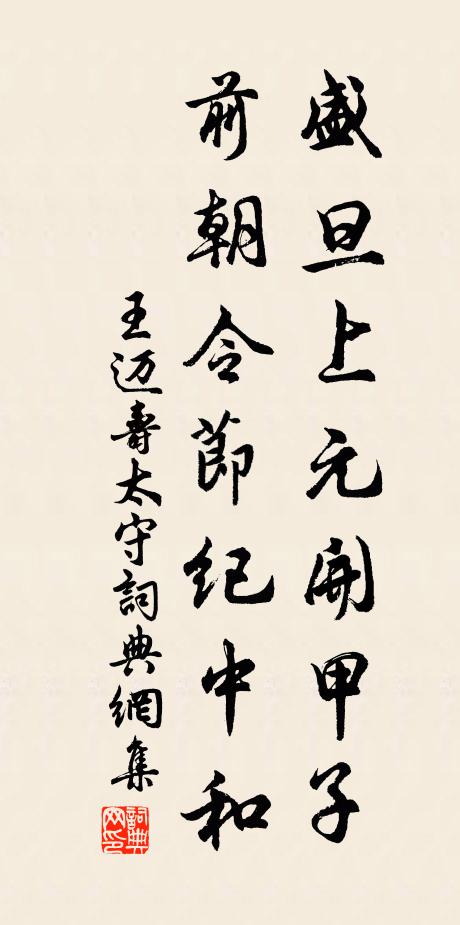 盛旦上元開甲子
前朝令節紀中和
王迈壽太守詞典網集
詞典网印